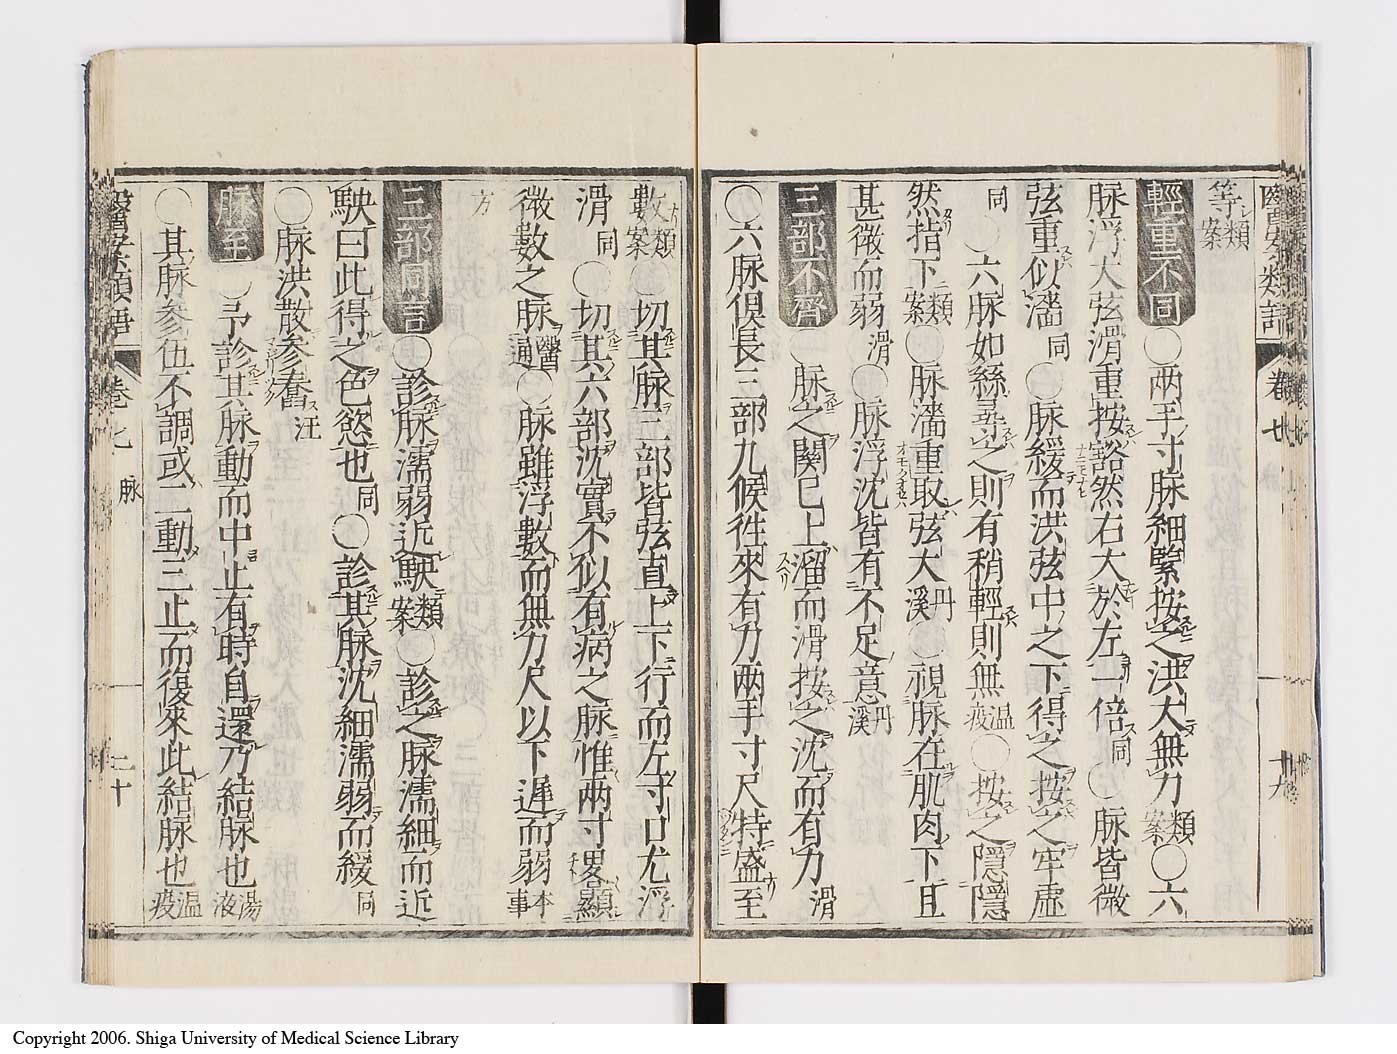 等類案
輕重不同○兩手寸脉細緊按之洪大無力類案○六
脉浮大弦滑重按豁然右大於左一倍同○脉皆微
弦重似濇同○脉緩而洪弦中之下得之按之牢虛
同○六脉如絲尋之則有稍輕則無温疫○按之隱隱
然指下類案○脉濇重取弦大丹溪○視脉在肌肉下且
甚微而弱滑○脉浮沈皆有不足意丹溪
三部不齊○脉之關已上溜而滑按之沈而有力滑
○六脉俱長三部九候徃來有力兩手寸尺特盛至
醫案類語 卷七 十九
數類案○切其脉三部皆弦直上下行而左寸口尤浮
滑同○切其六部沈實不似有病之脉惟兩寸畧顯
微數之脉醫通○脉雖浮數而無力尺以下遲而弱本事
方
三部同言○診脉濡弱近駃類案○診之脉濡細而近
駃曰此得之色慾也同○診其脉沈細濡弱而緩同
○脉洪散参舂汪
脉至○予診其脉動而中止有時自還乃結脉也湯液
○其脉參伍不調或二動三止而復來此結脉也温疫
醫案類語 卷七 脉 二十
Copyright 2006. Shiga University of Medical Science Library